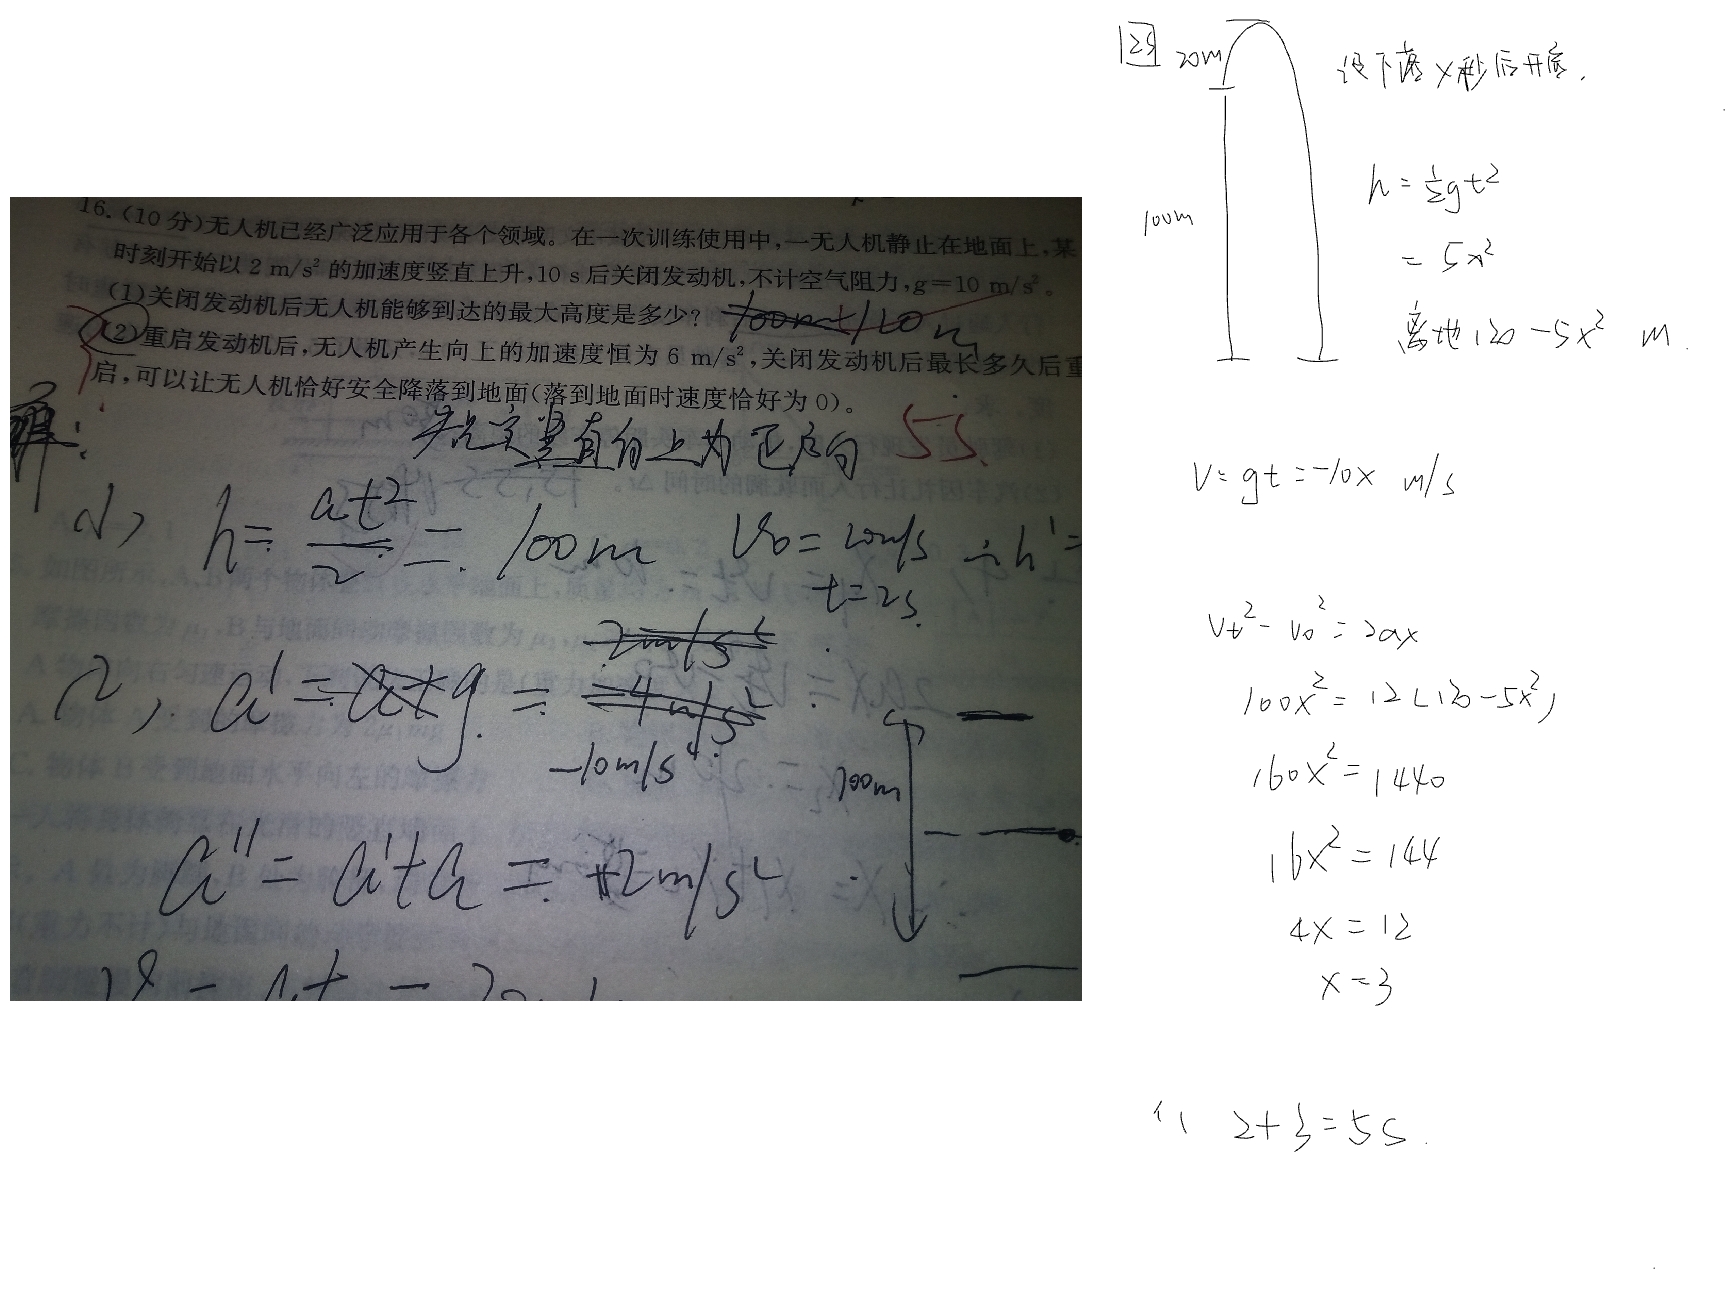 16.(10分)无人机已经广泛应用于各个领域。在一次训练使用中,一无人机静止在地面上,某
时刻开始以2 m/s²的加速度竖直上升,10 s后关闭发动机,不计空气阻力,g=10 m/s²。
(1)关闭发动机后无人机能够到达的最大高度是多少?
120m
(2)重启发动机后,无人机产生向上的加速度恒为6 m/s²,关闭发动机后最长多久后重
启,可以让无人机恰好安全降落到地面(落到地面时速度恰好为0)。
5S.
解:
竖直向上为正方向
(1) h = at²/2 = 100m V₀ = 20m/s ∴h' =
t=2s.
(2) a' = g = -10m/s²
100m
a'' = a'+a =
25
20m
100m
设下落x秒后开启.
h = ½gt²
= 5x²
离地120-5x² m.
V = gt = -10x m/s
Vt² - V₀² = 2ax
100x² = 12(120-5x²)
160x² = 1440
16x² = 144
4x = 12
x = 3
2+3=5s.